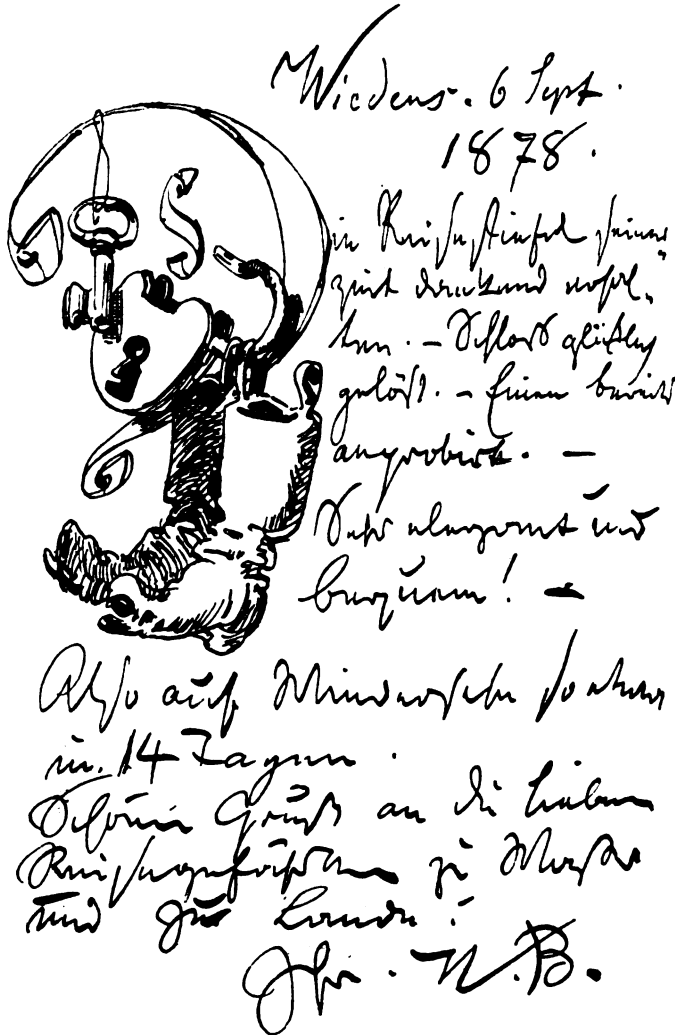 Wiedens. 6 Sept.
1878.
ie Reisestiefel seiner„
zeit dankend erhal„
ten. – Schloß glücklich
gelöst. – Einen bereits
anprobirt. –
Sehr elegant und
bequem! –
Also auf Wiedersehn so etwa
in 14 Tagen.
Schönen Gruß an die lieben
Reisegefährten zu Waßer
und zu Lande!
Ihr. W. B.